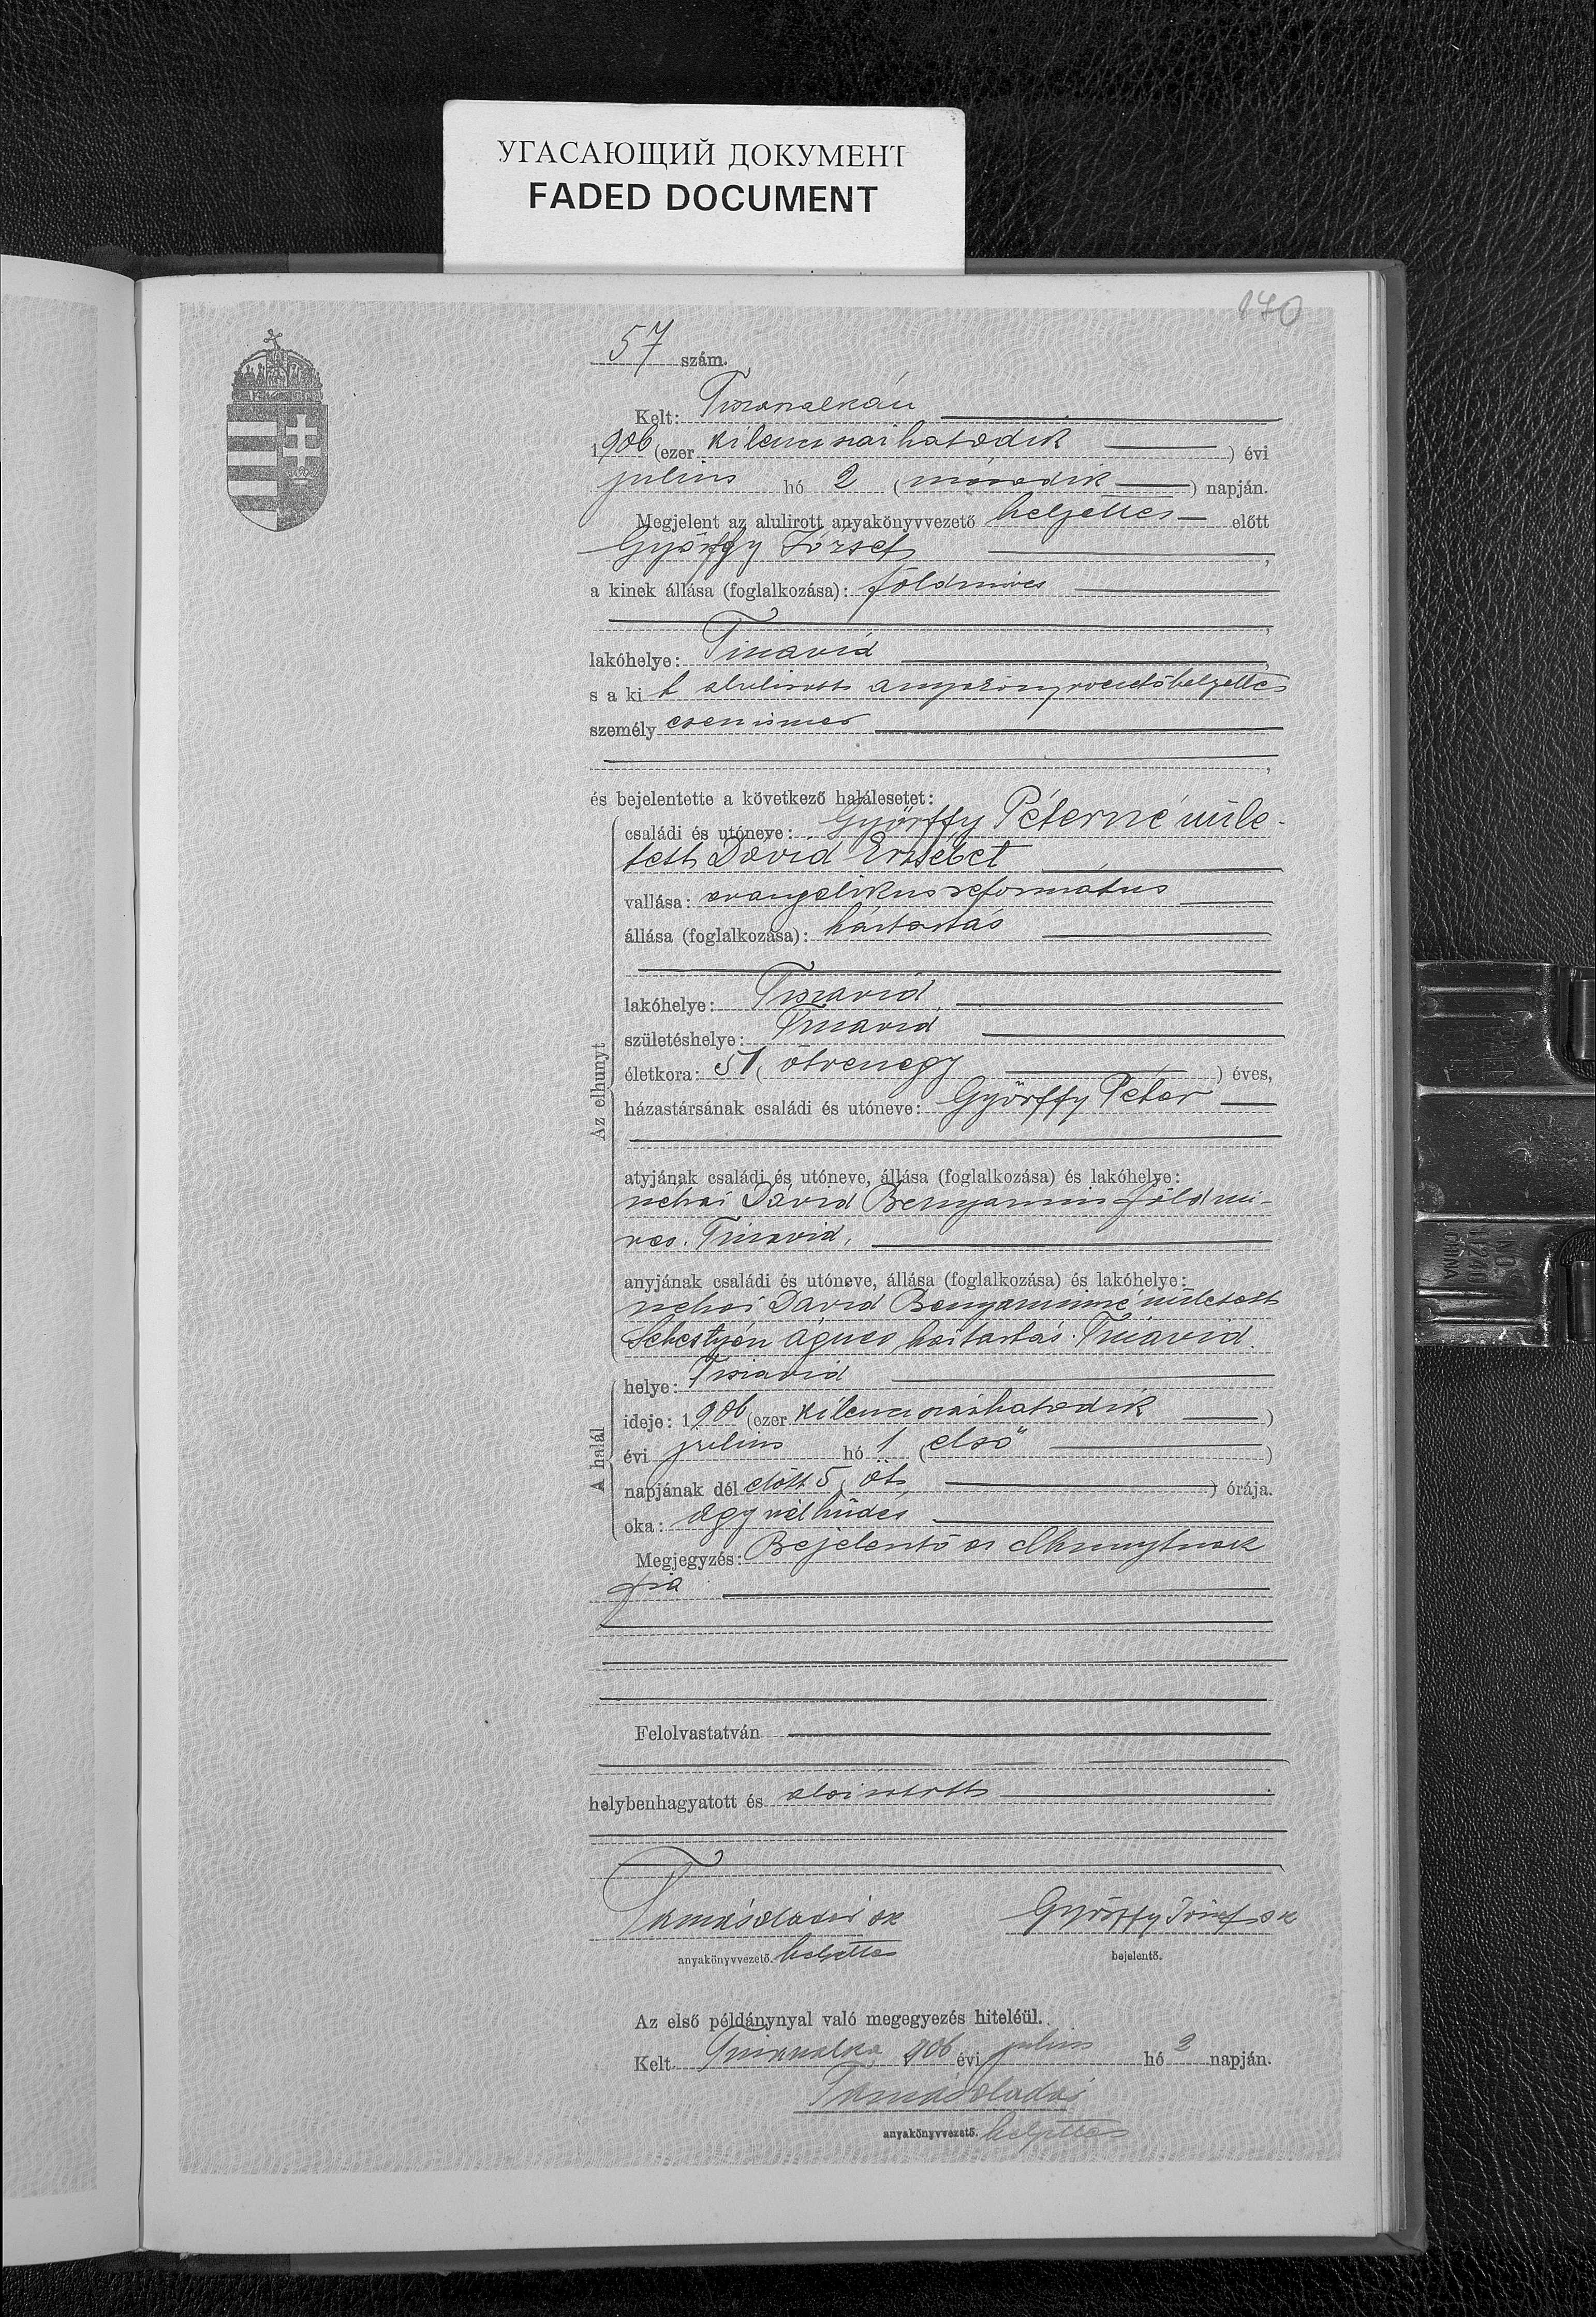 УГАСАЮЩИЙ ДОКУМЕНТ
FADED DOCUMENT
170
57 szám.
Kelt: Tiszakalkán
1906 (ezer kilenczszázhatodik ) évi
julius hó 2 (második ) napján.
Megjelent az alulirott anyakönyvvezető helyettes előtt
Györffy József ,
a kinek állása (foglalkozása): földmives
,
lakóhelye: Tiszavid ,
s a kit alulirott anyakönyvvezetőhelyettes
személyesen ismer
,
és bejelentette a következő halálesetet:
Az elhunyt
családi és utóneve: Györffy Péterné szüle-
tett Dávid Erzsébet
vallása: evangelikus református
állása (foglalkozása): háztartás
lakóhelye: Tiszavid
születéshelye: Tiszavid
életkora: 51 (ötvenegy ) éves,
házastársának családi és utóneve: Györffy Péter
atyjának családi és utóneve, állása (foglalkozása) és lakóhelye:
néhai Dávid Benyamin földmi-
ves. Tiszavid,
anyjának családi és utóneve, állása (foglalkozása) és lakóhelye:
néhai Dávid Benyaminné született
Sebestyén Ágnes háztartás. Tiszavid.
A halál
helye: Tiszavid
ideje: 1906 (ezer kilenczszázhatodik )
évi julius hó 1 (első )
napjának dél előtt 5 (öt ) órája.
oka: agyvélhüdés
Megjegyzés: Bejelentő az elhunytnak
fia
Felolvastatván
helybenhagyatott és aláiratott
Tamás sk
Györffy József sk
anyakönyvvezető. helyettes
bejelentő.
Az első példánynyal való megegyezés hiteléül.
Kelt 906 évi julius hó 2 napján.
Tamás
anyakönyvvezető. helyettes
NO.
1240
CHINA